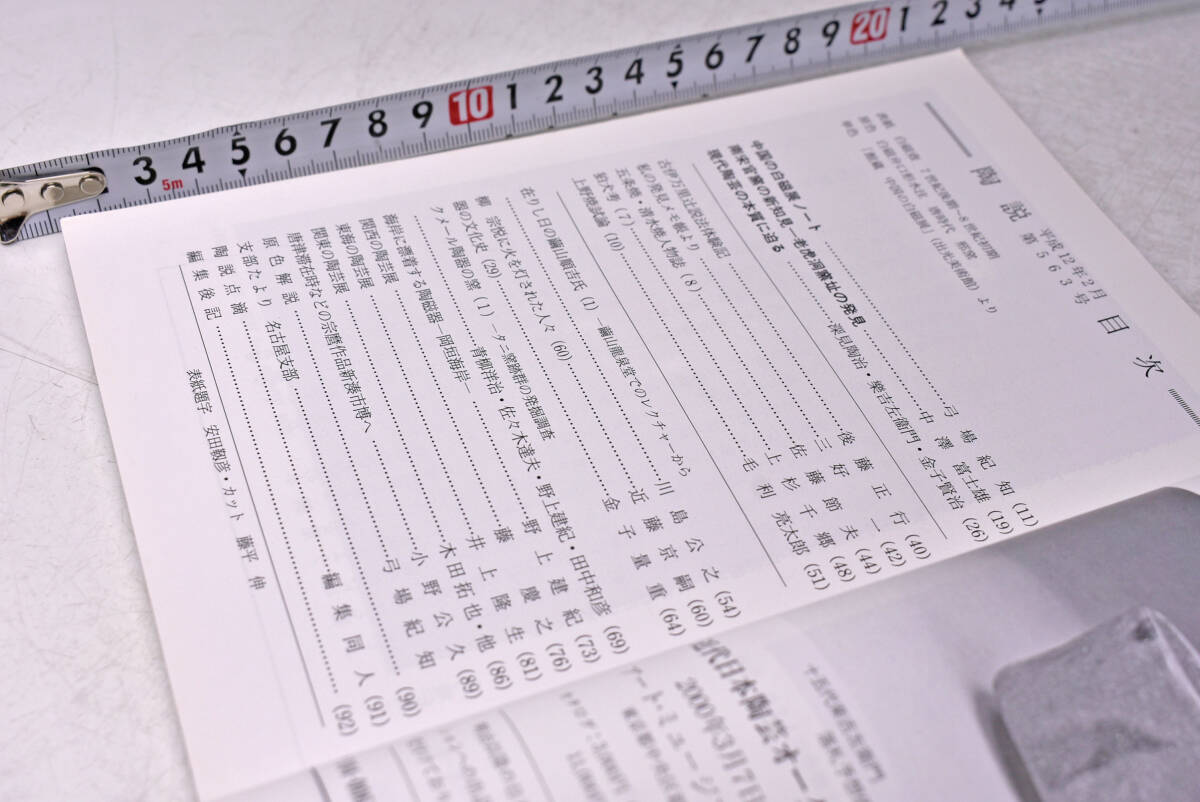 陶説 第563号
平成12年2月
目次
中国の白磁展ノート 弓場紀知 (11)
南宋官窯の新知見―老虎洞窯址の発見 中澤富士雄 (19)
現代陶芸の本質に迫る 深見陶治・樂吉左衞門・金子賢治 (26)
古伊万里辻説法体験記 後藤正行 (40)
私の発見メモ帳より 三好一 (42)
五条焼・清水焼人物誌 (8) 佐藤節夫 (44)
狛犬考 (7) 上杉千郷 (48)
上野焼試論 (10) 毛利亮太郎 (51)
在りし日の繭山順吉氏 (1) ―繭山龍泉堂でのレクチャーから 川島公之 (54)
柳宗悦に火を灯された人々 (60) 近藤京嗣 (60)
器の文化史 (29) 金子量重 (64)
クメール陶器の窯 (1) ―タニ窯跡群の発掘調査
青柳洋治・佐々木達夫・野上建紀・田中和彦 (69)
海岸に漂着する陶磁器―岡垣海岸― 野上建紀 (73)
関西の陶芸展 藤慶之 (76)
東海の陶芸展 井上隆生 (81)
関東の陶芸展 木田拓也・他 (86)
唐津滞在時などの宗麿作品新湊市博へ 小野公久 (89)
原色解説 弓場紀知 (90)
支部たより 名古屋支部
陶説点滴 編集同人 (91)
編集後記 (92)
表紙題字 安田靫彦・カット 藤平伸
3 4 5 6 7 8 9 10 1 2 3 4 5 6 7 8 9 20 1 2 3 4
5m
代日本陶芸オー
2000年3月7日
アート・ミュージ